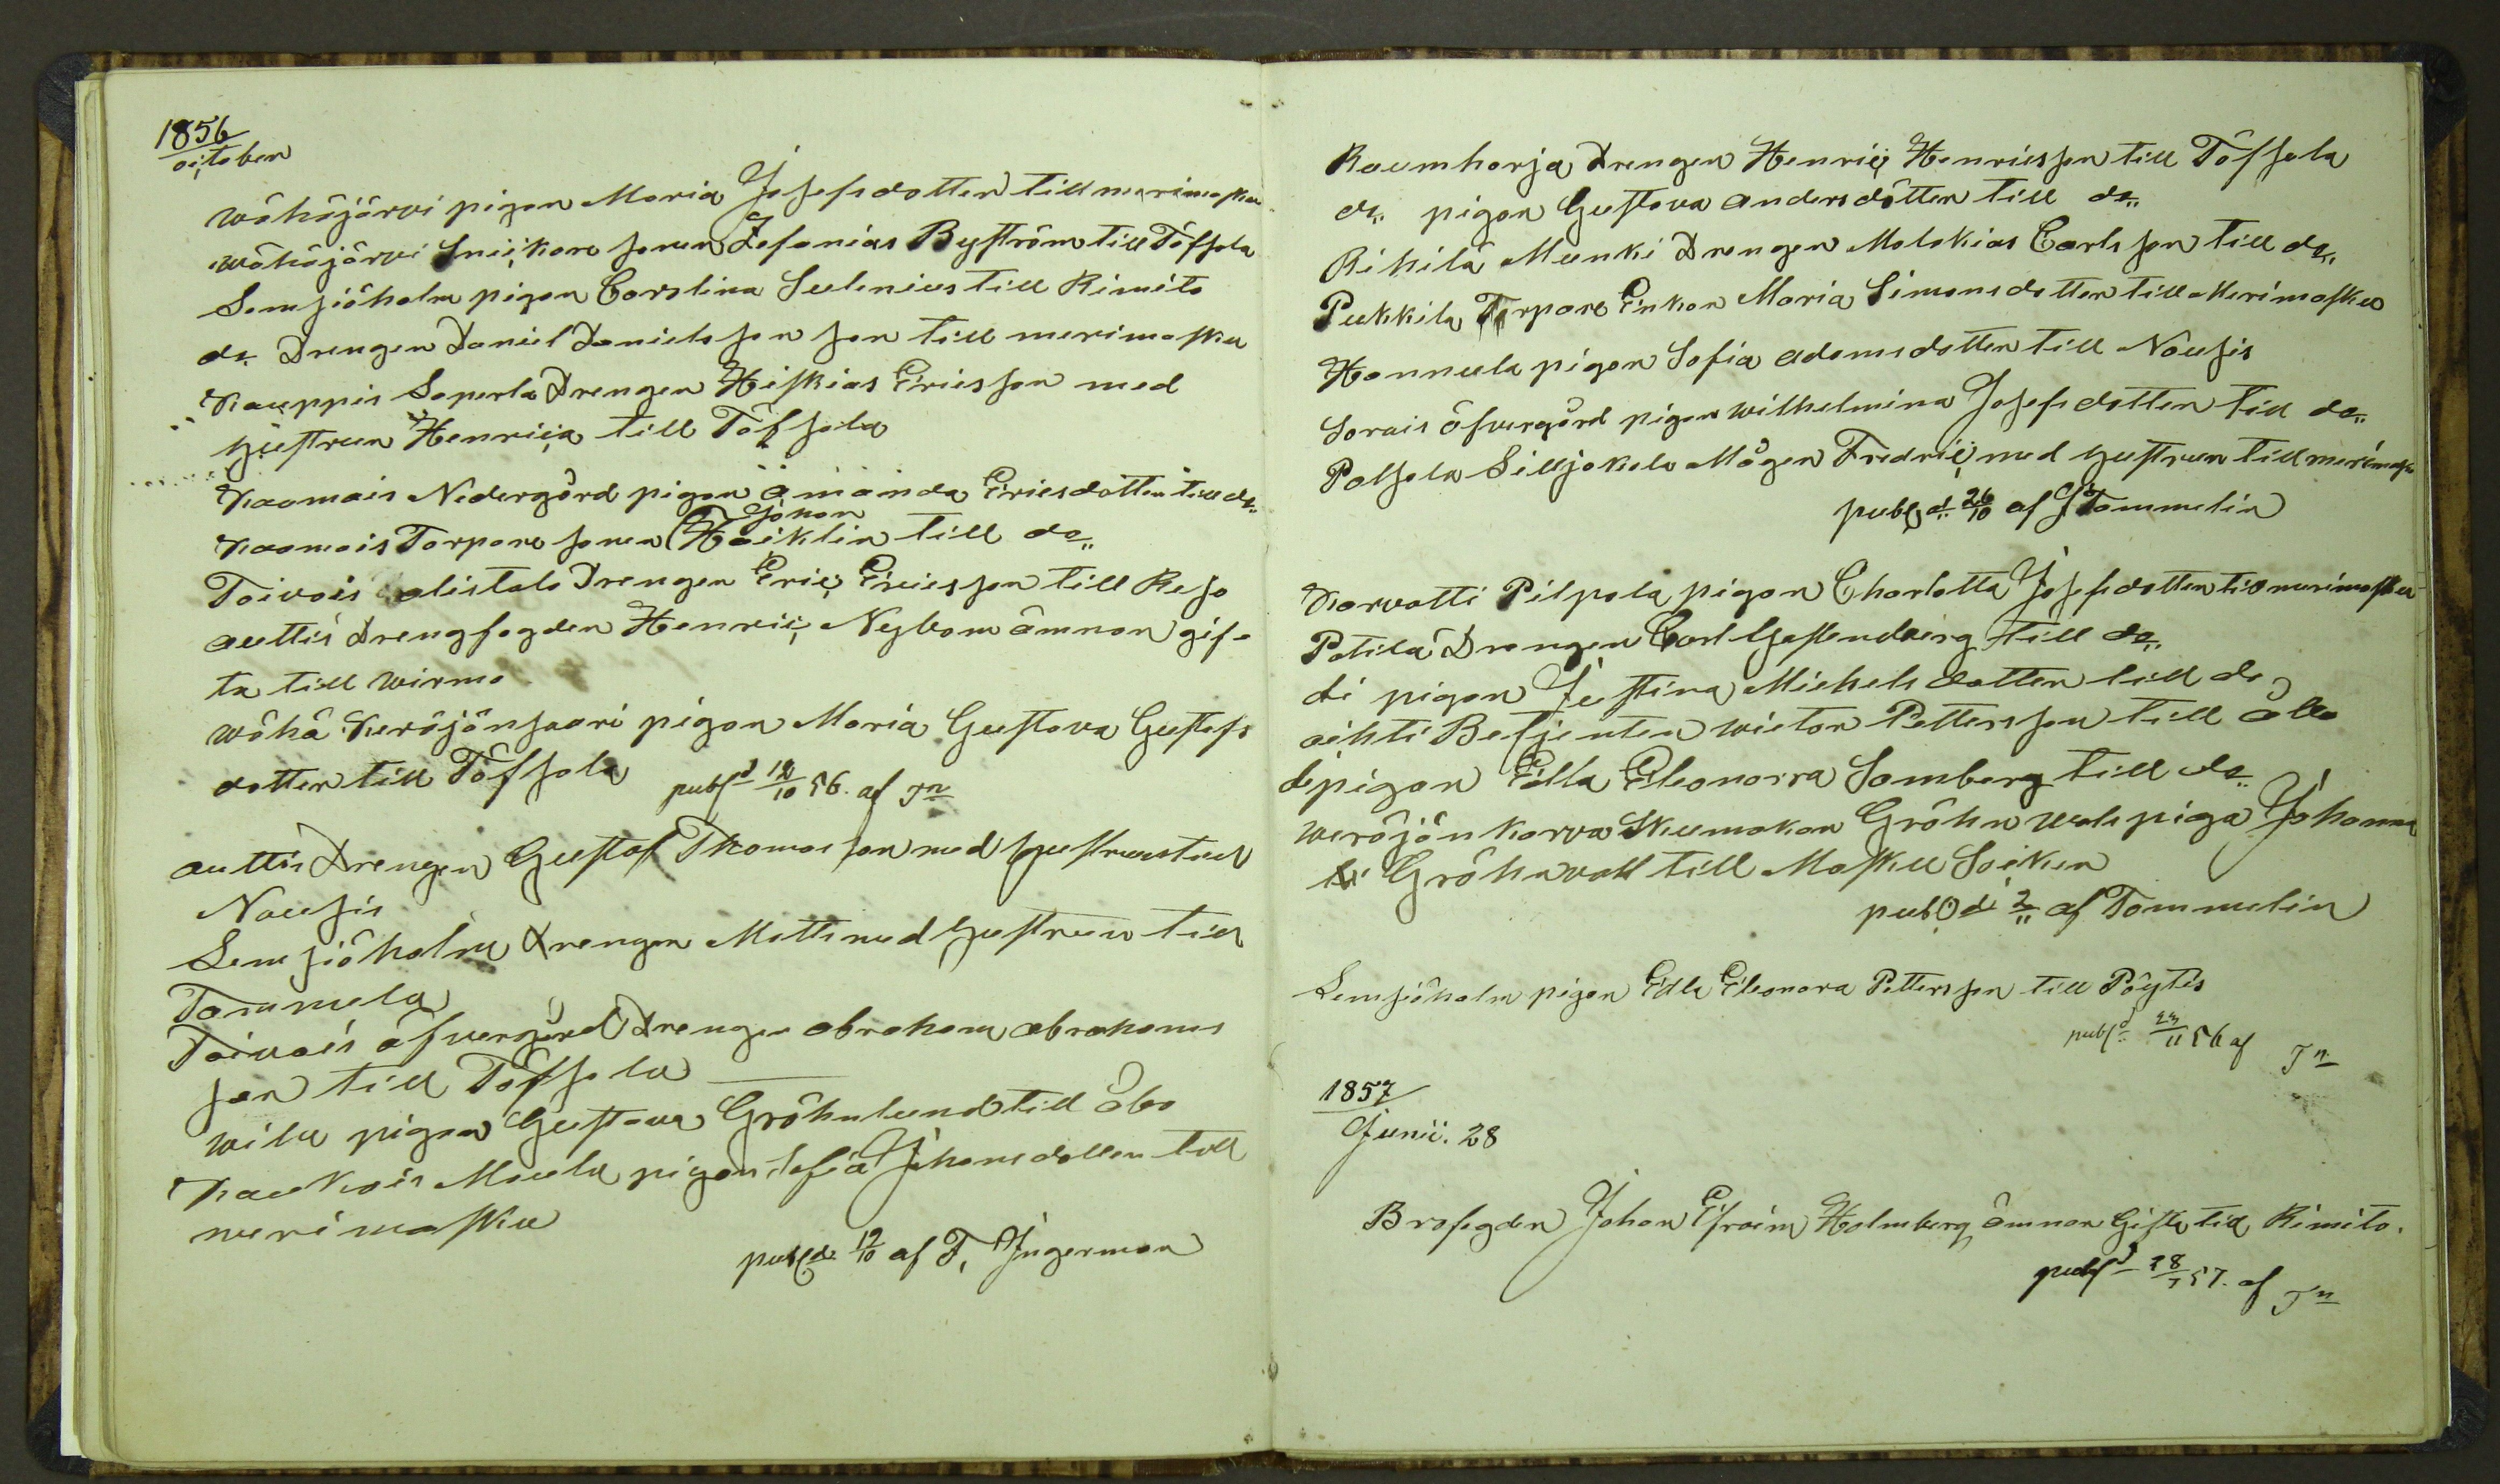 1856
october
wähäjärvi pigan Maria Josefsdotter till merimasku
wähäjärvi Snickare sonen Zefanias Byström till Töfsala
Lemsiöholm pigan Carolina Sulenius till Rimito
do Drengen Daniel Danielsson son till merimasku
Kauppis Saperla Drengen Hiskias Ericsson med
hustrun Henrica till Töfsala
Kaamais Nedergård pigan amanda Ericsdotter till do
Kaamais Torpare sonen Johan Haiklin till do
Toivois alistalo Drengen Eric Ericsson till Reso
auttis Drengfogden Henric Nybom ämnar gif-
ta till wirmo
wähä Keräjänsaari pigan Maria Gustava Gustafs
dotter till Töfsala
publ d 12/10 56. af Tn
auttis Drengen Gustaf Thomasson med hustru till
Nousis
Lemsiöholm Drengen Matts med hustrun till
Tammela
Toivois öfvergård Drengen abraham abrahams
son till Töfsala
wilu pigan Gustava Gröhnlund till åbo
Kaukois Moula pigan Sofia Johansdotter till
merimasku
publ de 19/10 af F, Ingerman
Raumharja Drengen Henric Henricsson till Töfsala
do pigan Gustava andersdotter till do
Rihilä Munki Drengen Malakias Carlsson till do
Pukkila Torpare Enkan Maria Simonsdotter till Merimasku
Hannula pigan Sofia adamsdotter till Nousis
Sorais öfvergård pigan wilhelmina Josefsdotter till do
Palsala Silljokela Mågen Fredric med hustrun till merimasku
publ d 26/10 af Tammelin
Karvatti Pilpala pigan Charlotta Josefsdotter till merimasku
Potila Drengen Carl till do
di pigan Justina Michelsdotter till do
aihti Betjenten wictor Pettersson till åbo
de pigan Edla Eleonorra Somberg till do
weräjänkorva Skumakar Gröhnwals piga Johanna
Gröhnvall till Masku Soiken
publ di 2/11 af Tammelin
Lemsiöholm pigan Edla Eleonora Pettersson till Pöytis
publ d 23/11 56 af Tn
1857
Junii. 28
Brofogden Johan Efraim Holmberg ämnar Gifta till Rimito.
publ d 28/ 57. af Tn